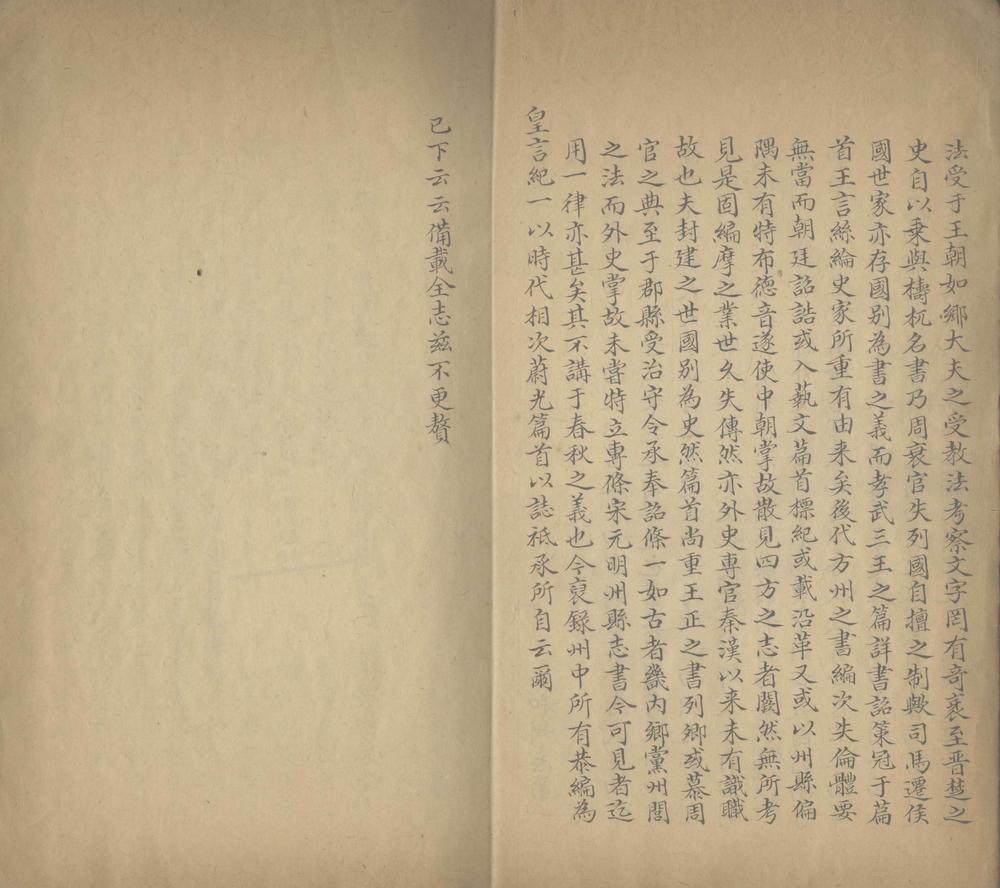 法受于王朝如鄉大夫之受教法考察文字罔有奇衺至晋楚之
史自以乗與檮杌名書乃周衰官失列國自擅之制歟司馬遷侯
國世家亦存國别為書之義而孝武三王之篇詳書詔策冠于篇
首王言絲綸史家所重有由来矣後代方州之書編次失倫體要
無當而朝廷詔誥或入藝文篇首標紀或載沿革又或以州縣偏
隅未有特布德音遂使中朝掌故散見四方之志者闕然無所考
見是固編摩之業世久失傳然亦外史專官秦漢以来未有識職
故也夫封建之世國别為史然篇首尚重王正之書列卿或慕周
官之典至于郡縣受治守令承奉詔條一如古者畿内鄉黨州閭
之法而外史掌故未嘗特立專條宋元明州縣志書今可見者迄
用一律亦甚矣其不講于春秋之義也今裒録州中所有恭編為
皇言紀一以時代相次蔚光篇首以誌祗承所自云爾
已下云云備載全志兹不更贅